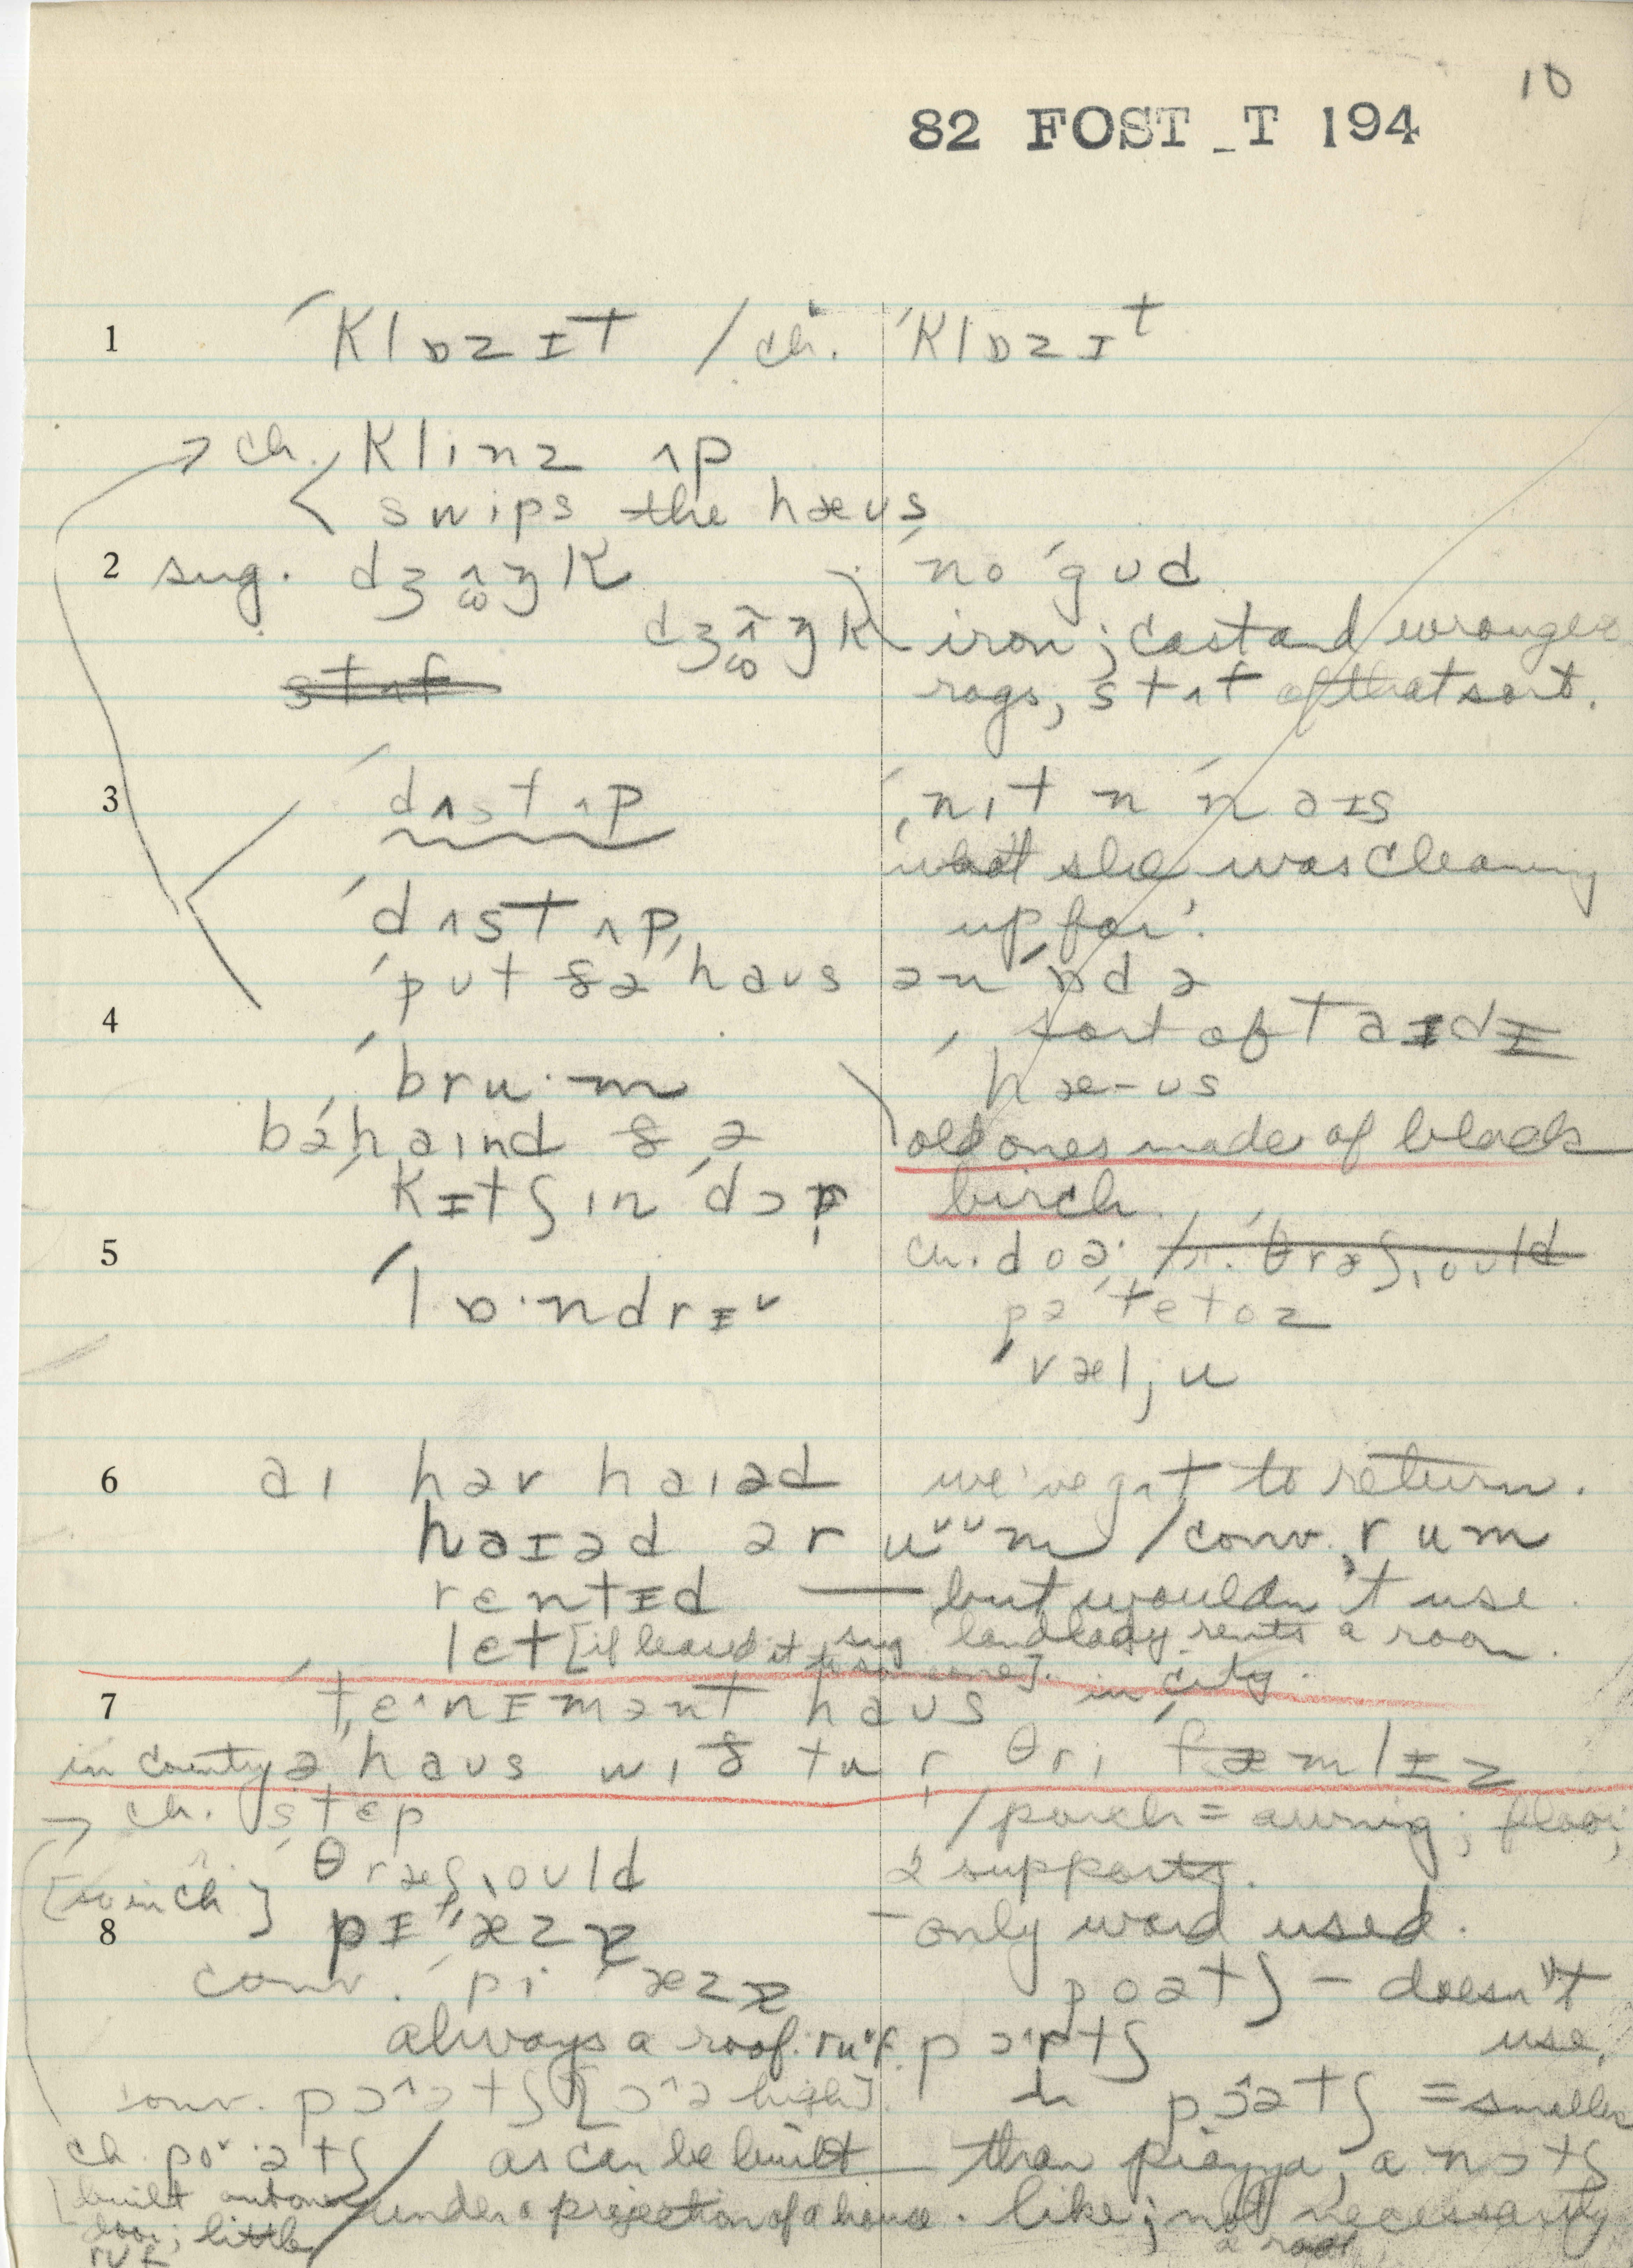 10
82 FOST_T 194
1 ´klɒzɪt / ch. ´klɒzɪt
→ ch. klinz ʌp
swips the hæus
2 sug. dʒʌŋk ´no ´gud
dʒʌŋk iron; cast and
stʌf rags, stʌf of that sort.
3 ´dʌst ʌp
what she was cleaning
´dʌst ʌp, up for'.
´put ðə ´haus ən ´ɒdə
4 sort of taɪdɪ
´bru·m hæ-us
bə´haind ðə old ones made of black
´kɪtʃin ´dɔr birch.
5 ch. doə· / θræʃ,ould
´lɒ·ndrɪ˅ pə´tetoz
´væl,u
6 ai hav haiəd we've gʌt to return.
haɪəd ə r u˅˅m / conv. rum
rentɪd — but wouldn't use.
let [if leased it sug landlady rents a room.
to some one]. in city.
7 ´tɛ^nɪmənt haus
in country ə haus wið tu r θri fæmlɪz
→ ch. stɛp / porch = awnig; floor;
θræʃ,ould 2 supports.
[so in ch]
8 pɪ´æzə - only word used.
conv. pi´æzə poətʃ - doesn't
always a roof. ruf. pɔ^rtʃ use.
conv. pɔ^ətʃ [ɔ^ə high]. pɔ^ətʃ = smaller
ch. po˅·ətʃ / as can be built than piazza, a nɔtʃ
built out one under a projection of a house. like; not necessarily
door; little a roof
ruf